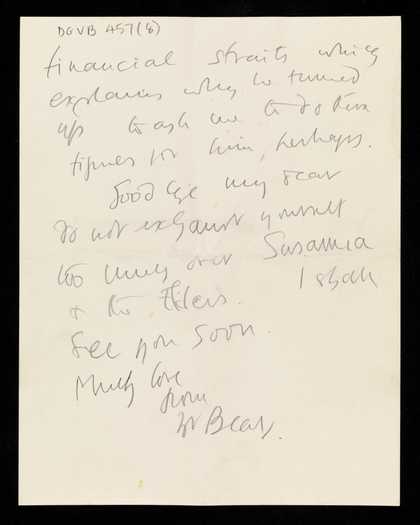 DGVB 457(8)
financial straits which
explains why he turned
up to ask me to do two
figures for him, perhaps.
Goodbye my dear
do not exhaust yourself
too much over Susanna
& the Elders.
I shall
See you soon.
Much love
from
yr Bear.